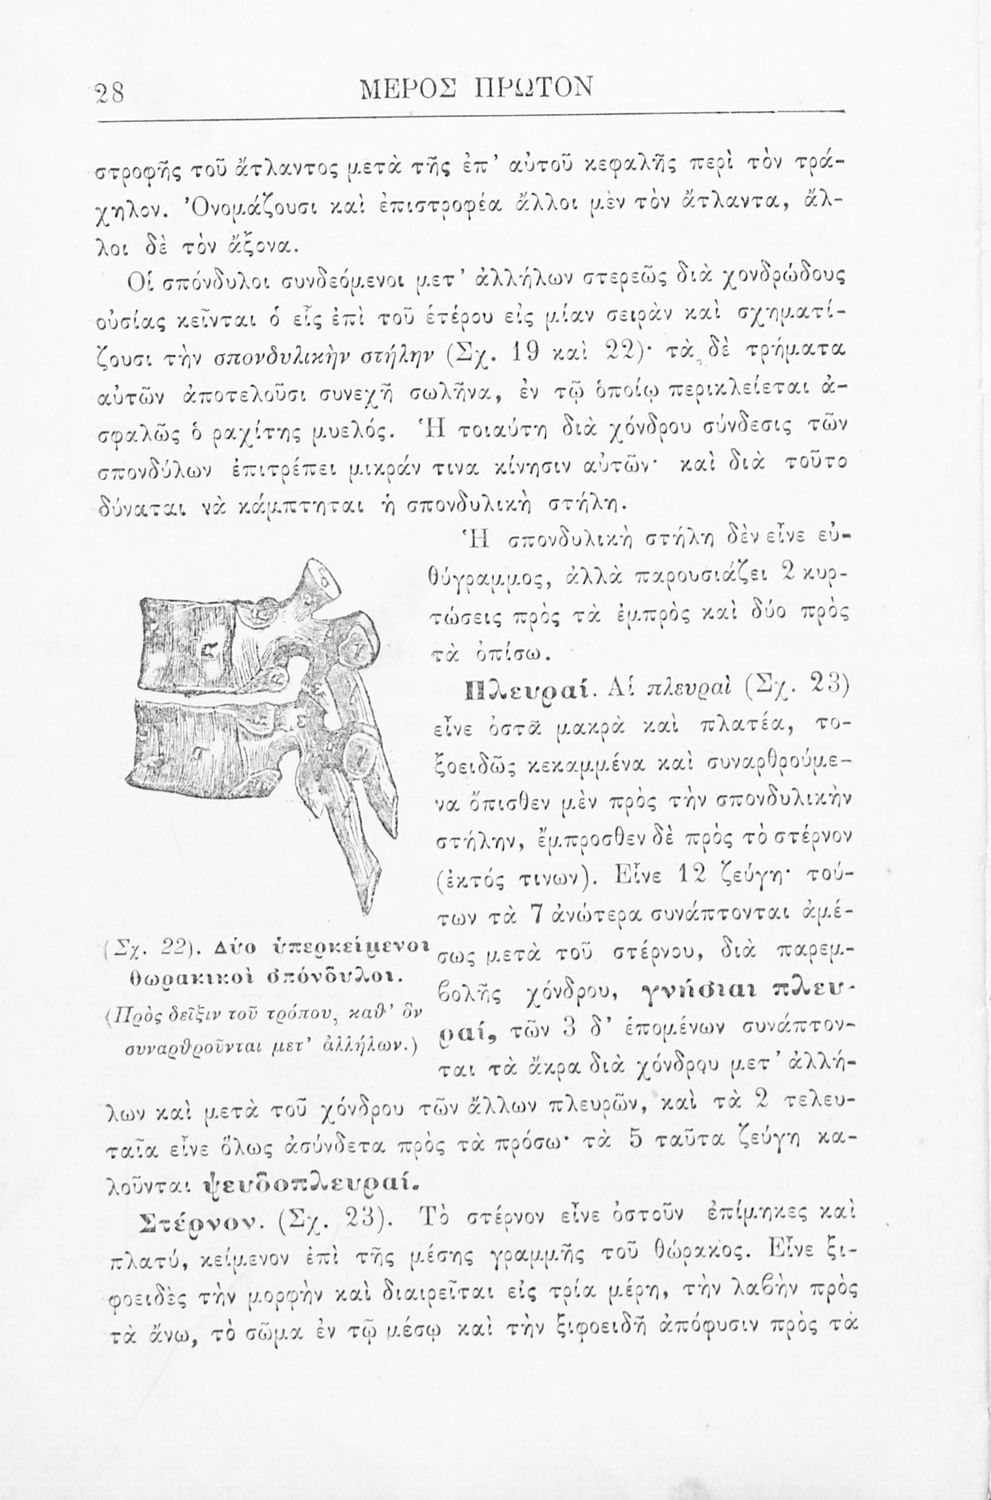 28
ΜΕΡΟΣ ΠΡΩΤΟΝ
στροφῆς τοῦ ἄτλαντος μετὰ τῆς ἐπ' αὐτοῦ κεφαλῆς περὶ τὸν τρά-
χηλον. Ὀνομάζουσι καὶ ἐπιστροφέα ἄλλοι μὲν τὸν ἄτλαντα, ἄλ-
λοι δὲ τὸν ἄξονα.
Οἱ σπόνδυλοι συνδεόμενοι μετ' ἀλλήλων στερεῶς διὰ χονδρώδους
οὐσίας κεῖνται ὁ εἷς ἐπὶ τοῦ ἑτέρου εἰς μίαν σειρὰν καὶ σχηματί-
ζουσι τὴν σπονδυλικὴν στήλην (Σχ. 19 καὶ 22)· τὰ δὲ τρήματα
αὐτῶν ἀποτελοῦσι συνεχῆ σωλῆνα, ἐν τῷ ὁποίῳ περικλείεται ἀ-
σφαλῶς ὁ ραχίτης μυελός. Ἡ τοιαύτη διὰ χόνδρου σύνδεσις τῶν
σπονδύλων ἐπιτρέπει μικράν τινα κίνησιν αὐτῶν· καὶ διὰ τοῦτο
δύναται νὰ κάμπτηται ἡ σπονδυλικὴ στήλη.
Ἡ σπονδυλικὴ στήλη δὲν εἶνε εὐ-
θύγραμμος, ἀλλὰ παρουσιάζει 2 κυρ-
τώσεις πρὸς τὰ ἐμπρὸς καὶ δύο πρὸς
τὰ ὀπίσω.
Πλευραί. Αἱ πλευραὶ (Σχ. 23)
εἶνε ὀστᾶ μακρὰ καὶ πλατέα, το-
ξοειδῶς κεκαμμένα καὶ συναρθρούμε-
να ὄπισθεν μὲν πρὸς τὴν σπονδυλικὴν
στήλην, ἔμπροσθεν δὲ πρὸς τὸ στέρνον
(ἐκτός τινων). Εἶνε 12 ζεύγη· τού-
των τὰ 7 ἀνώτερα συνάπτονται ἀμέ-
σως μετὰ τοῦ στέρνου, διὰ παρεμ-
βολῆς χόνδρου, γνήσιαι πλευ-
ραί, τῶν 3 δ' ἑπομένων συνάπτον-
ται τὰ ἄκρα διὰ χόνδρου μετ' ἀλλή-
(Σχ. 22). Δύο ὑπερκείμενοι
θωρακικοὶ σπόνδυλοι.
(Πρὸς δεῖξιν τοῦ τρόπου, καθ' ὃν
συναρθροῦνται μετ' ἀλλήλων.)
λων καὶ μετὰ τοῦ χόνδρου τῶν ἄλλων πλευρῶν, καὶ τὰ 2 τελευ-
ταῖα εἶνε ὅλως ἀσύνδετα πρὸς τὰ πρόσω· τὰ 5 ταῦτα ζεύγη κα-
λοῦνται ψευδοπλευραί.
Στέρνον. (Σχ. 23). Τὸ στέρνον εἶνε ὀστοῦν ἐπίμηκες καὶ
πλατύ, κείμενον ἐπὶ τῆς μέσης γραμμῆς τοῦ θώρακος. Εἶνε ξι-
φοειδὲς τὴν μορφὴν καὶ διαιρεῖται εἰς τρία μέρη, τὴν λαβὴν πρὸς
τὰ ἄνω, τὸ σῶμα ἐν τῷ μέσῳ καὶ τὴν ξιφοειδῆ ἀπόφυσιν πρὸς τὰ